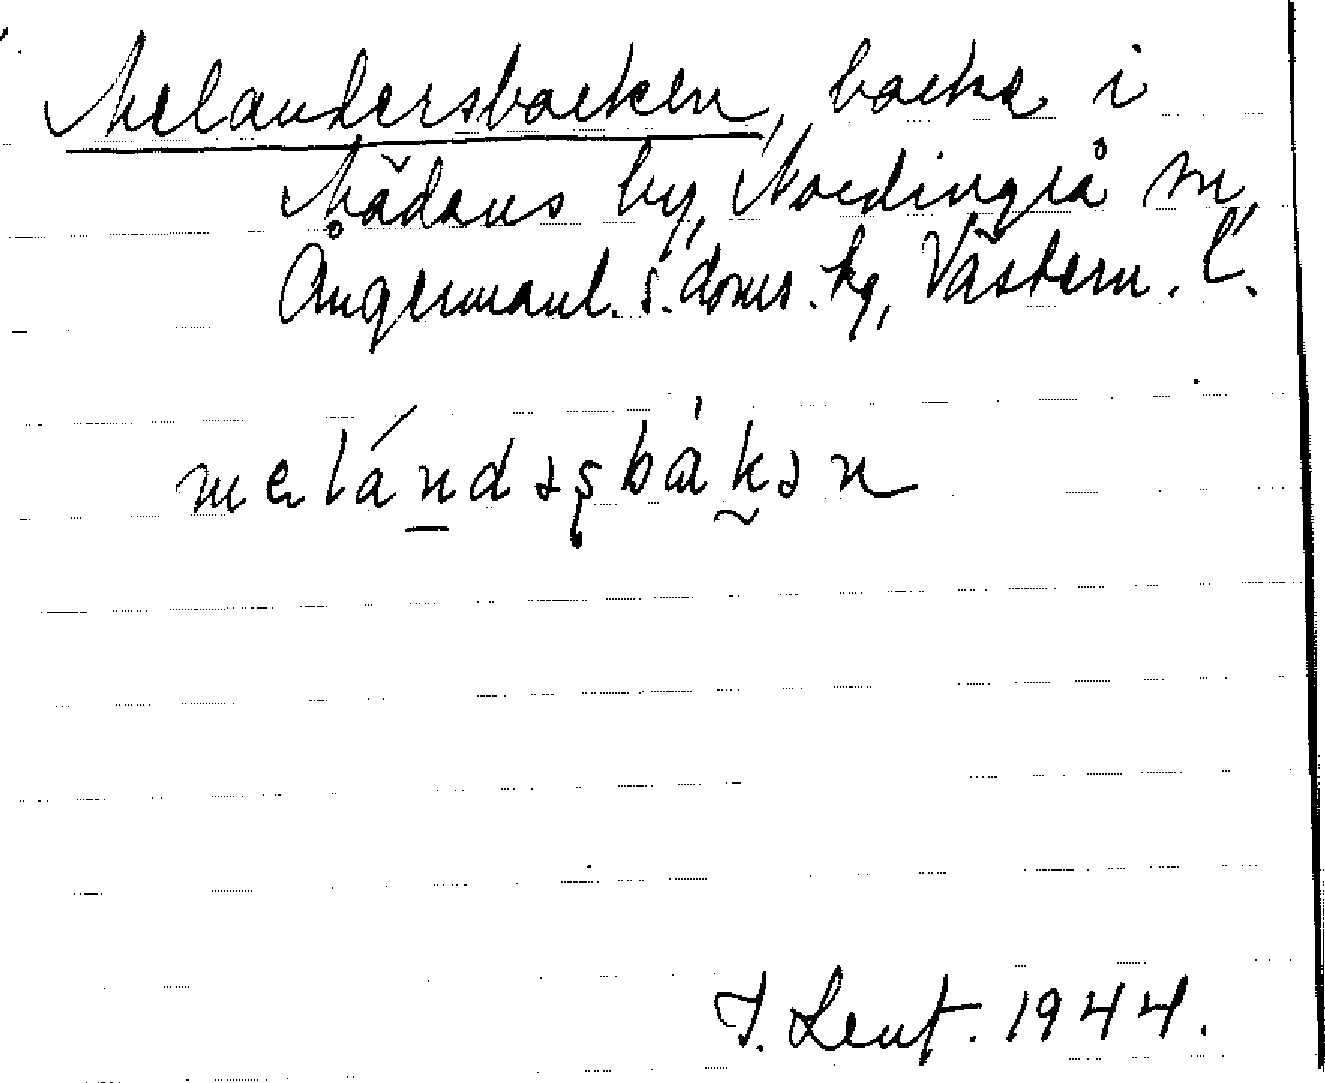 Melandersbacken, backe i
Mädans by, Nordingrå sn,
Ångermanl. s. doms. hg, Västern. l.
melándəʂbákən
J. Lent. 1944.